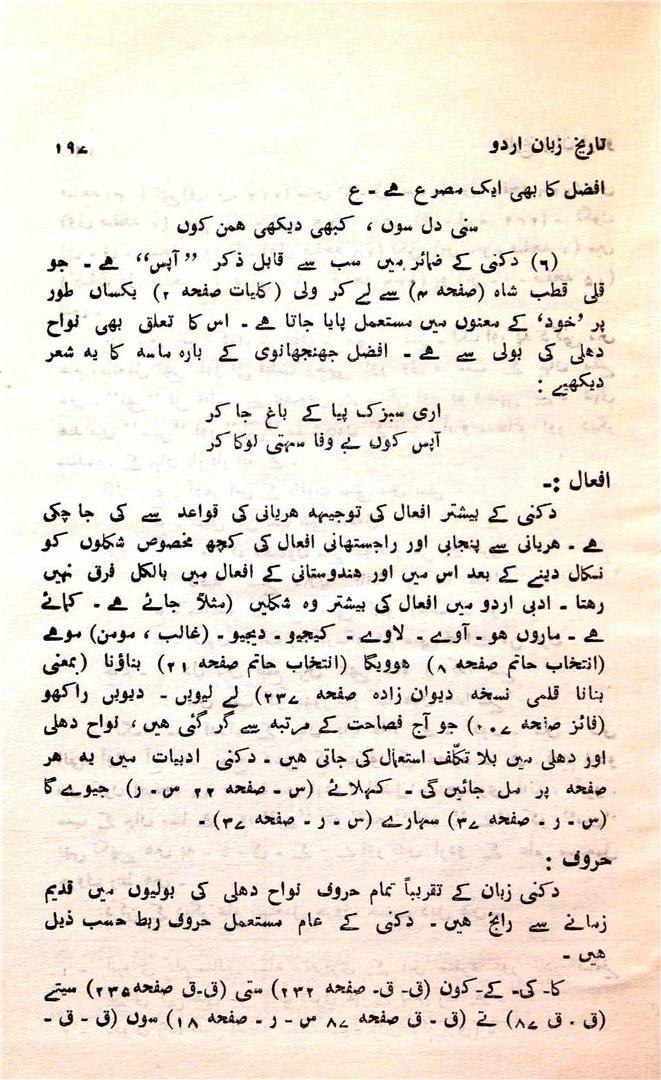 تاریخ زبان اردو ۱۹۷
افضل کا بھی ایک مصرع ہے ۔ ع
سنی دل سوں ، کبھی دیکھی ہمن کوں
(٦) دکنی کے ضمائر میں سب سے قابل ذکر ”آپس“ ہے ۔ جو
قلی قطب شاہ (صفحہ ۳) سے لے کر ولی (کلیات صفحہ ۲) یکساں طور
پر ’خود‘ کے معنوں میں مستعمل پایا جاتا ہے ۔ اس کا تعلق بھی نواح
دہلی کی بولی سے ہے ۔ افضل جھنجھانوی کے بارہ ماسہ کا یہ شعر
دیکھیے :
اری سیزک پیا کے باغ جا کر
آپس کوں بے وفا سہتی لوکا کر
افعال :۔
دکنی کے بیشتر افعال کی توجیہہ ہریانی کی قواعد سے کی جا چکی
ہے ۔ ہریانی سے پنجابی اور راجستھانی افعال کی کچھ مخصوص شکلوں کو
نکال دینے کے بعد اس میں اور ہندوستانی کے افعال میں بالکل فرق نہیں
رہتا ۔ ادبی اردو میں افعال کی بیشتر وہ شکلیں (مثلاً جائے ہے ۔ کمائے
ہے ۔ ماروں ہو ۔ آوے ۔ لاوے ۔ کیجیو ۔ دیجیو ۔ (غالب ، مومن) موہے
(انتخاب حاتم صفحہ ۸) ہوویگا (انتخاب حاتم صفحہ ۲۱) بناؤنا (بمعنی
بنانا قلمی نسخہ دیوان زادہ صفحہ ۲۳۷) لے لیویں ۔ دیویں راکھو
(فائز صفحہ ۲۰۷) جو آج فصاحت کے مرتبہ سے گر گئی ہیں ، نواح دہلی
اور دہلی میں بلا تکلّف استعمال کی جاتی ہیں ۔ دکنی ادبیات میں یہ ہر
صفحہ پر مل جائیں گی ۔ کہلائے (س ۔ صفحہ ۲۲ س ۔ ر) جیوے گا
(س ۔ ر ۔ صفحہ ۳۷) سہارے (س ۔ ر ۔ صفحہ ۳۷) ۔
حروف :
دکنی زبان کے تقریباً تمام حروف نواح دہلی کی بولیوں میں قدیم
زمانے سے رائج ہیں ۔ دکنی کے عام مستعمل حروف ربط حسب ذیل
ہیں ۔
کا۔ کی۔ کے۔ کون (ق۔ ق۔ صفحہ ۲۳۲) ستی (ق۔ق صفحہ ۲۳۵) سیتے
(ق ۔ ق ۸۷) تے (ق ۔ ق صفحہ ۸۷ س ۔ ر ۔ صفحہ ۱۸) سوں (ق ۔ ق ۔